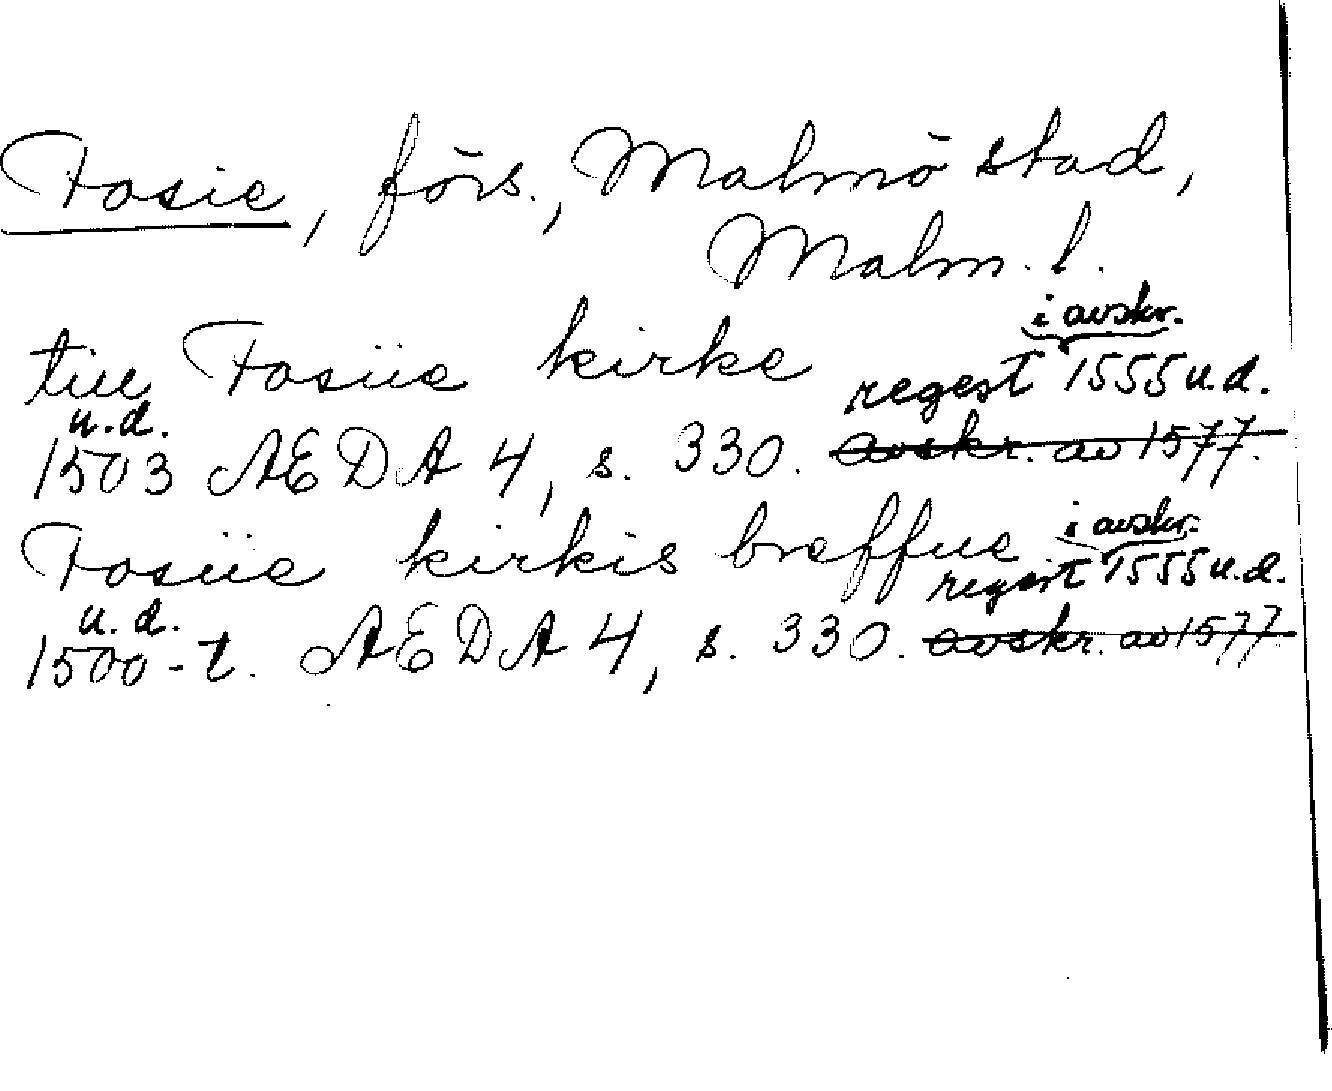 Fosie, förs., Malmö stad,
Malm. l.
i avskr.
till Fosiie kirke regest 1555 u.d.
u.d.
1503 AEDA 4, s. 330. avskr. av 1577.
i avskr.
Fosiie kirkis breffue regest 1555 u.d.
u.d.
1500-t. AEDA 4, s. 330. avskr. av 1577